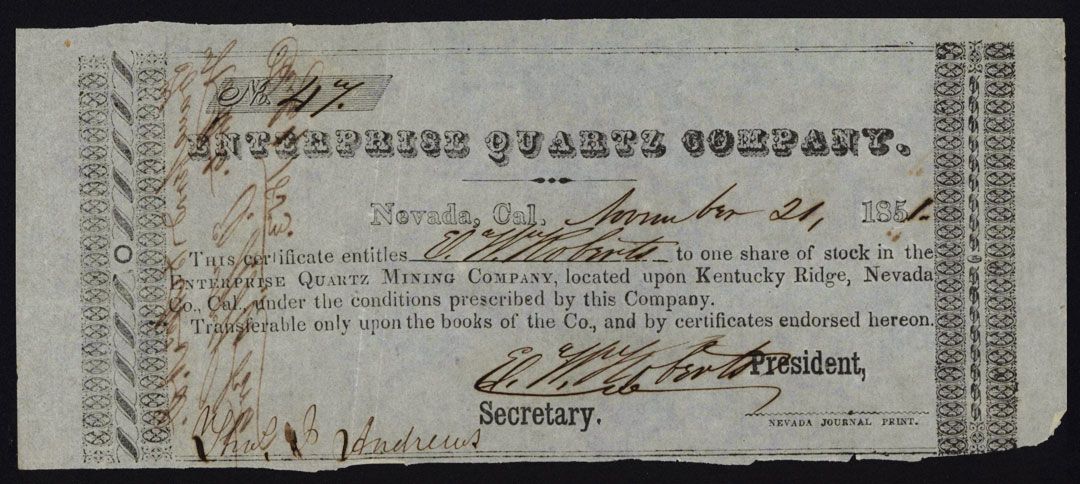 No. 47.
ENTERPRISE QUARTZ COMPANY.
Nevada, Cal. November 21, 1851.
THIS certificate entitles E. W. Roberts to one share of stock in the
ENTERPRISE QUARTZ MINING COMPANY, located upon Kentucky Ridge, Nevada
Co., Cal. under the conditions prescribed by this Company.
Transferable only upon the books of the Co., and by certificates endorsed hereon.
E. W. Roberts President,
Secretary.
NEVADA JOURNAL PRINT.
Andrews